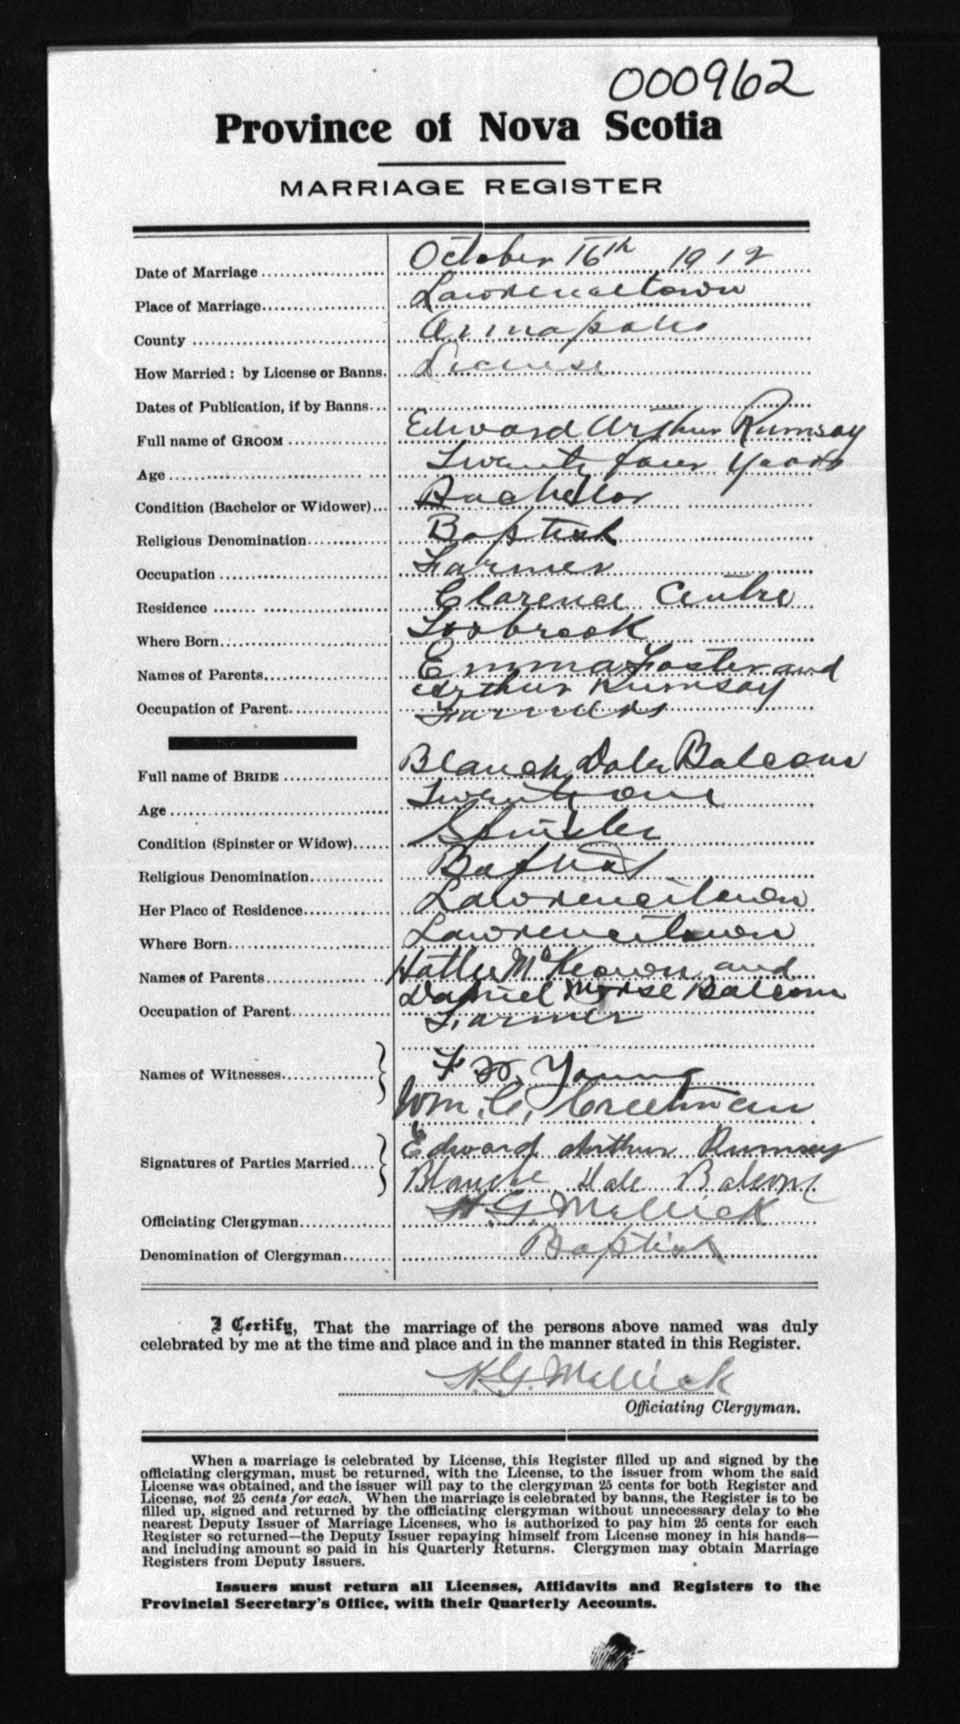 000962
Province of Nova Scotia
MARRIAGE REGISTER
Date of Marriage October 16th 1912
Place of Marriage Lawrencetown
County Annapolis
How Married : by License or Banns. License
Dates of Publication, if by Banns
Full name of GROOM Edward Arthur Rumsay
Age Twenty four Years
Condition (Bachelor or Widower) Bachelor
Religious Denomination Baptist
Occupation Farmer
Residence Clarence Centre
Where Born Torbrook
Names of Parents Emma Foster and
Arthur Rumsay
Occupation of Parent Farmers
Full name of BRIDE Blanch Balcom
Age Twenty one
Condition (Spinster or Widow) Spinster
Religious Denomination Baptist
Her Place of Residence Lawrencetown
Where Born Lawrencetown
Names of Parents McKeown and
Daniel Morse Balcom
Occupation of Parent Farmer
Names of Witnesses F Young
Wm. C. Creelman
Signatures of Parties Married Edward Arthur Rumsey
Blanche Balcom
Officiating Clergyman H. G. Mellick
Denomination of Clergyman Baptist
I Certify, That the marriage of the persons above named was duly
celebrated by me at the time and place and in the manner stated in this Register.
H. G. Mellick
Officiating Clergyman.
When a marriage is celebrated by License, this Register filled up and signed by the
officiating clergyman, must be returned, with the License, to the issuer from whom the said
License was obtained, and the issuer will pay to the clergyman 25 cents for both Register and
License, not 25 cents for each. When the marriage is celebrated by banns, the Register is to be
filled up, signed and returned by the officiating clergyman without unnecessary delay to the
nearest Deputy Issuer of Marriage Licenses, who is authorized to pay him 25 cents for each
Register so returned—the Deputy Issuer repaying himself from License money in his hands—
and including amount so paid in his Quarterly Returns. Clergymen may obtain Marriage
Registers from Deputy Issuers.
Issuers must return all Licenses, Affidavits and Registers to the
Provincial Secretary's Office, with their Quarterly Accounts.